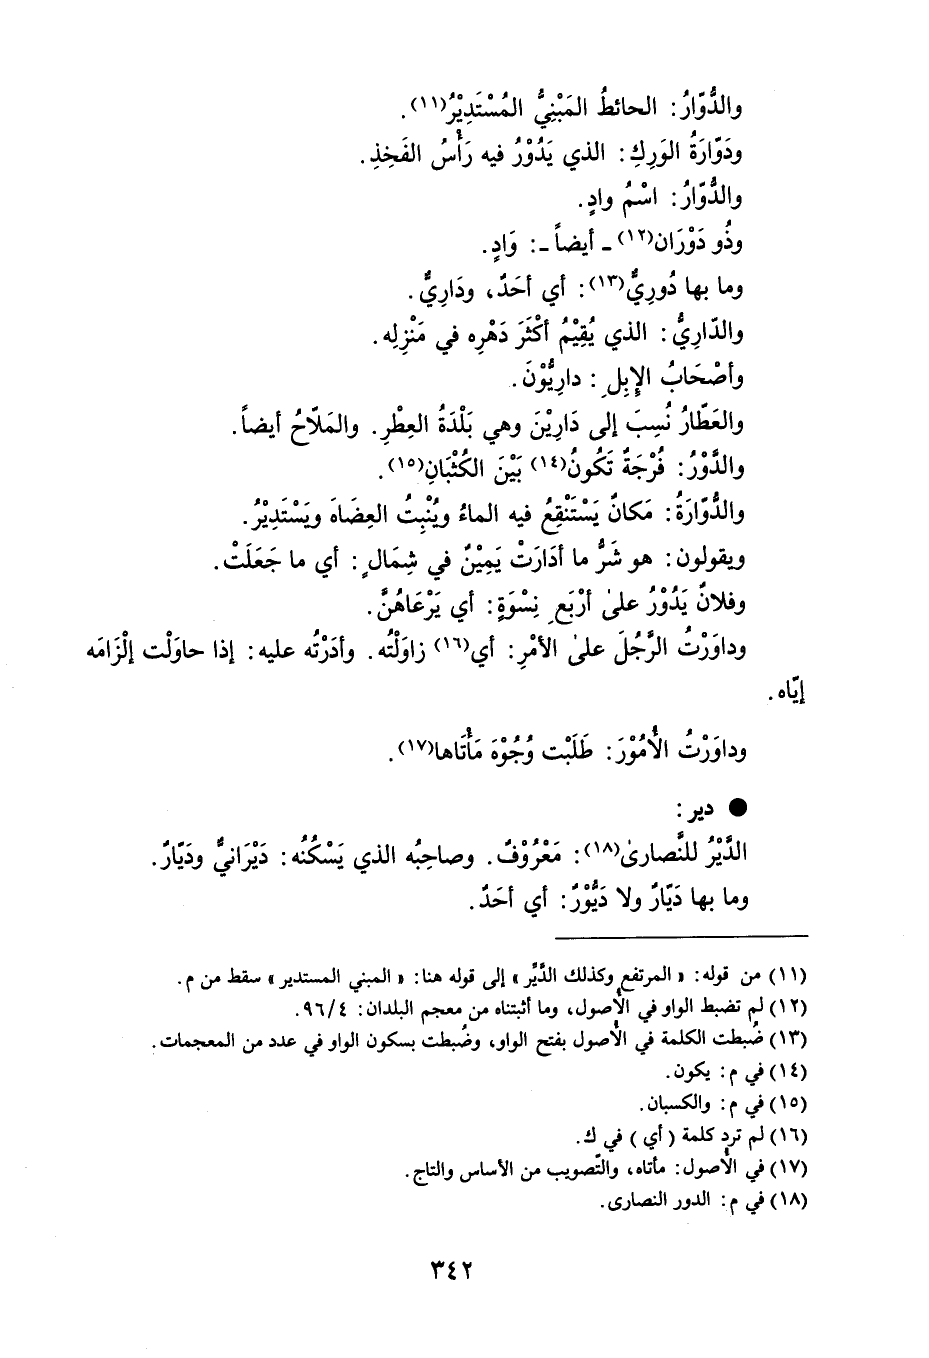 والدُّوّارُ: الحائطُ المَبْنِيُّ المُسْتَدِيْرُ(١١).
ودَوّارَةُ الوَرِكِ: الذي يَدُوْرُ فيه رَأْسُ الفَخِذِ.
والدُّوّارُ: اسْمُ وادٍ.
وذُو دَوْرَان(١٢) ـ أيضاً ـ: وَادٍ.
وما بها دُورِيٌّ(١٣): أي أحَدٌ، ودَارِيٌّ.
والدّارِيُّ: الذي يُقِيْمُ أكْثَرَ دَهْرِه في مَنْزِلِه.
وأصْحَابُ الإِبِلِ: دارِيُّوْنَ.
والعَطّارُ نُسِبَ إلى دَارِيْنَ وهي بَلْدَةُ العِطْرِ. والمَلّاحُ أيضاً.
والدَّوْرُ: فُرْجَةٌ تَكُونُ(١٤) بَيْنَ الكُثْبَانِ(١٥).
والدُّوّارَةُ: مَكانٌ يَسْتَنْقِعُ فيه الماءُ ويُنْبِتُ العِضَاهَ ويَسْتَدِيْرُ.
ويقولون: هو شَرُّ ما أدَارَتْ يَمِيْنٌ في شِمَالٍ: أي ما جَعَلَتْ.
وفلانٌ يَدُوْرُ علىٰ أرْبَعِ نِسْوَةٍ: أي يَرْعَاهُنَّ.
وداوَرْتُ الرَّجُلَ علىٰ الأمْرِ: أي(١٦) زاوَلْتُه. وأدَرْتُه عليه: إذا حاوَلْت إلْزَامَه
إيّاه.
وداوَرْتُ الأُمُوْرَ: طَلَبْت وُجُوْهَ مَأْتَاها(١٧).
● دير:
الدَّيْرُ للنَّصارىٰ(١٨): مَعْرُوْفٌ. وصاحِبُه الذي يَسْكُنُه: دَيْرَانيٌّ ودَيّارٌ.
وما بها دَيّارٌ ولا دَيُّوْرٌ: أي أحَدٌ.
(١١) من قوله: « المرتفع وكذلك الدَّيِّر » إلى قوله هنا: « المبني المستدير » سقط من م.
(١٢) لم تضبط الواو في الأُصول، وما أثبتناه من معجم البلدان: ٤/٩٦.
(١٣) ضُبطت الكلمة في الأُصول بفتح الواو، وضُبطت بسكون الواو في عدد من المعجمات.
(١٤) في م: يكون.
(١٥) في م: والكسبان.
(١٦) لم ترد كلمة ( أي ) في ك.
(١٧) في الأُصول: مأتاه، والتّصويب من الأساس والتاج.
(١٨) في م: الدور النصارى.
٣٤٢